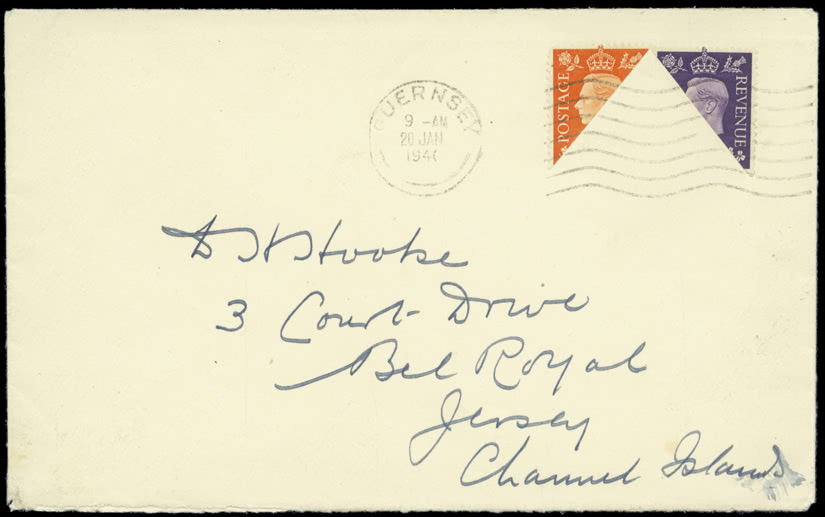 POSTAGE
REVENUE
GUERNSEY
9 - AM
20 JAN
194
D H Hooke
3 Court Drive
Bel Royal
Jersey
Channel Islands